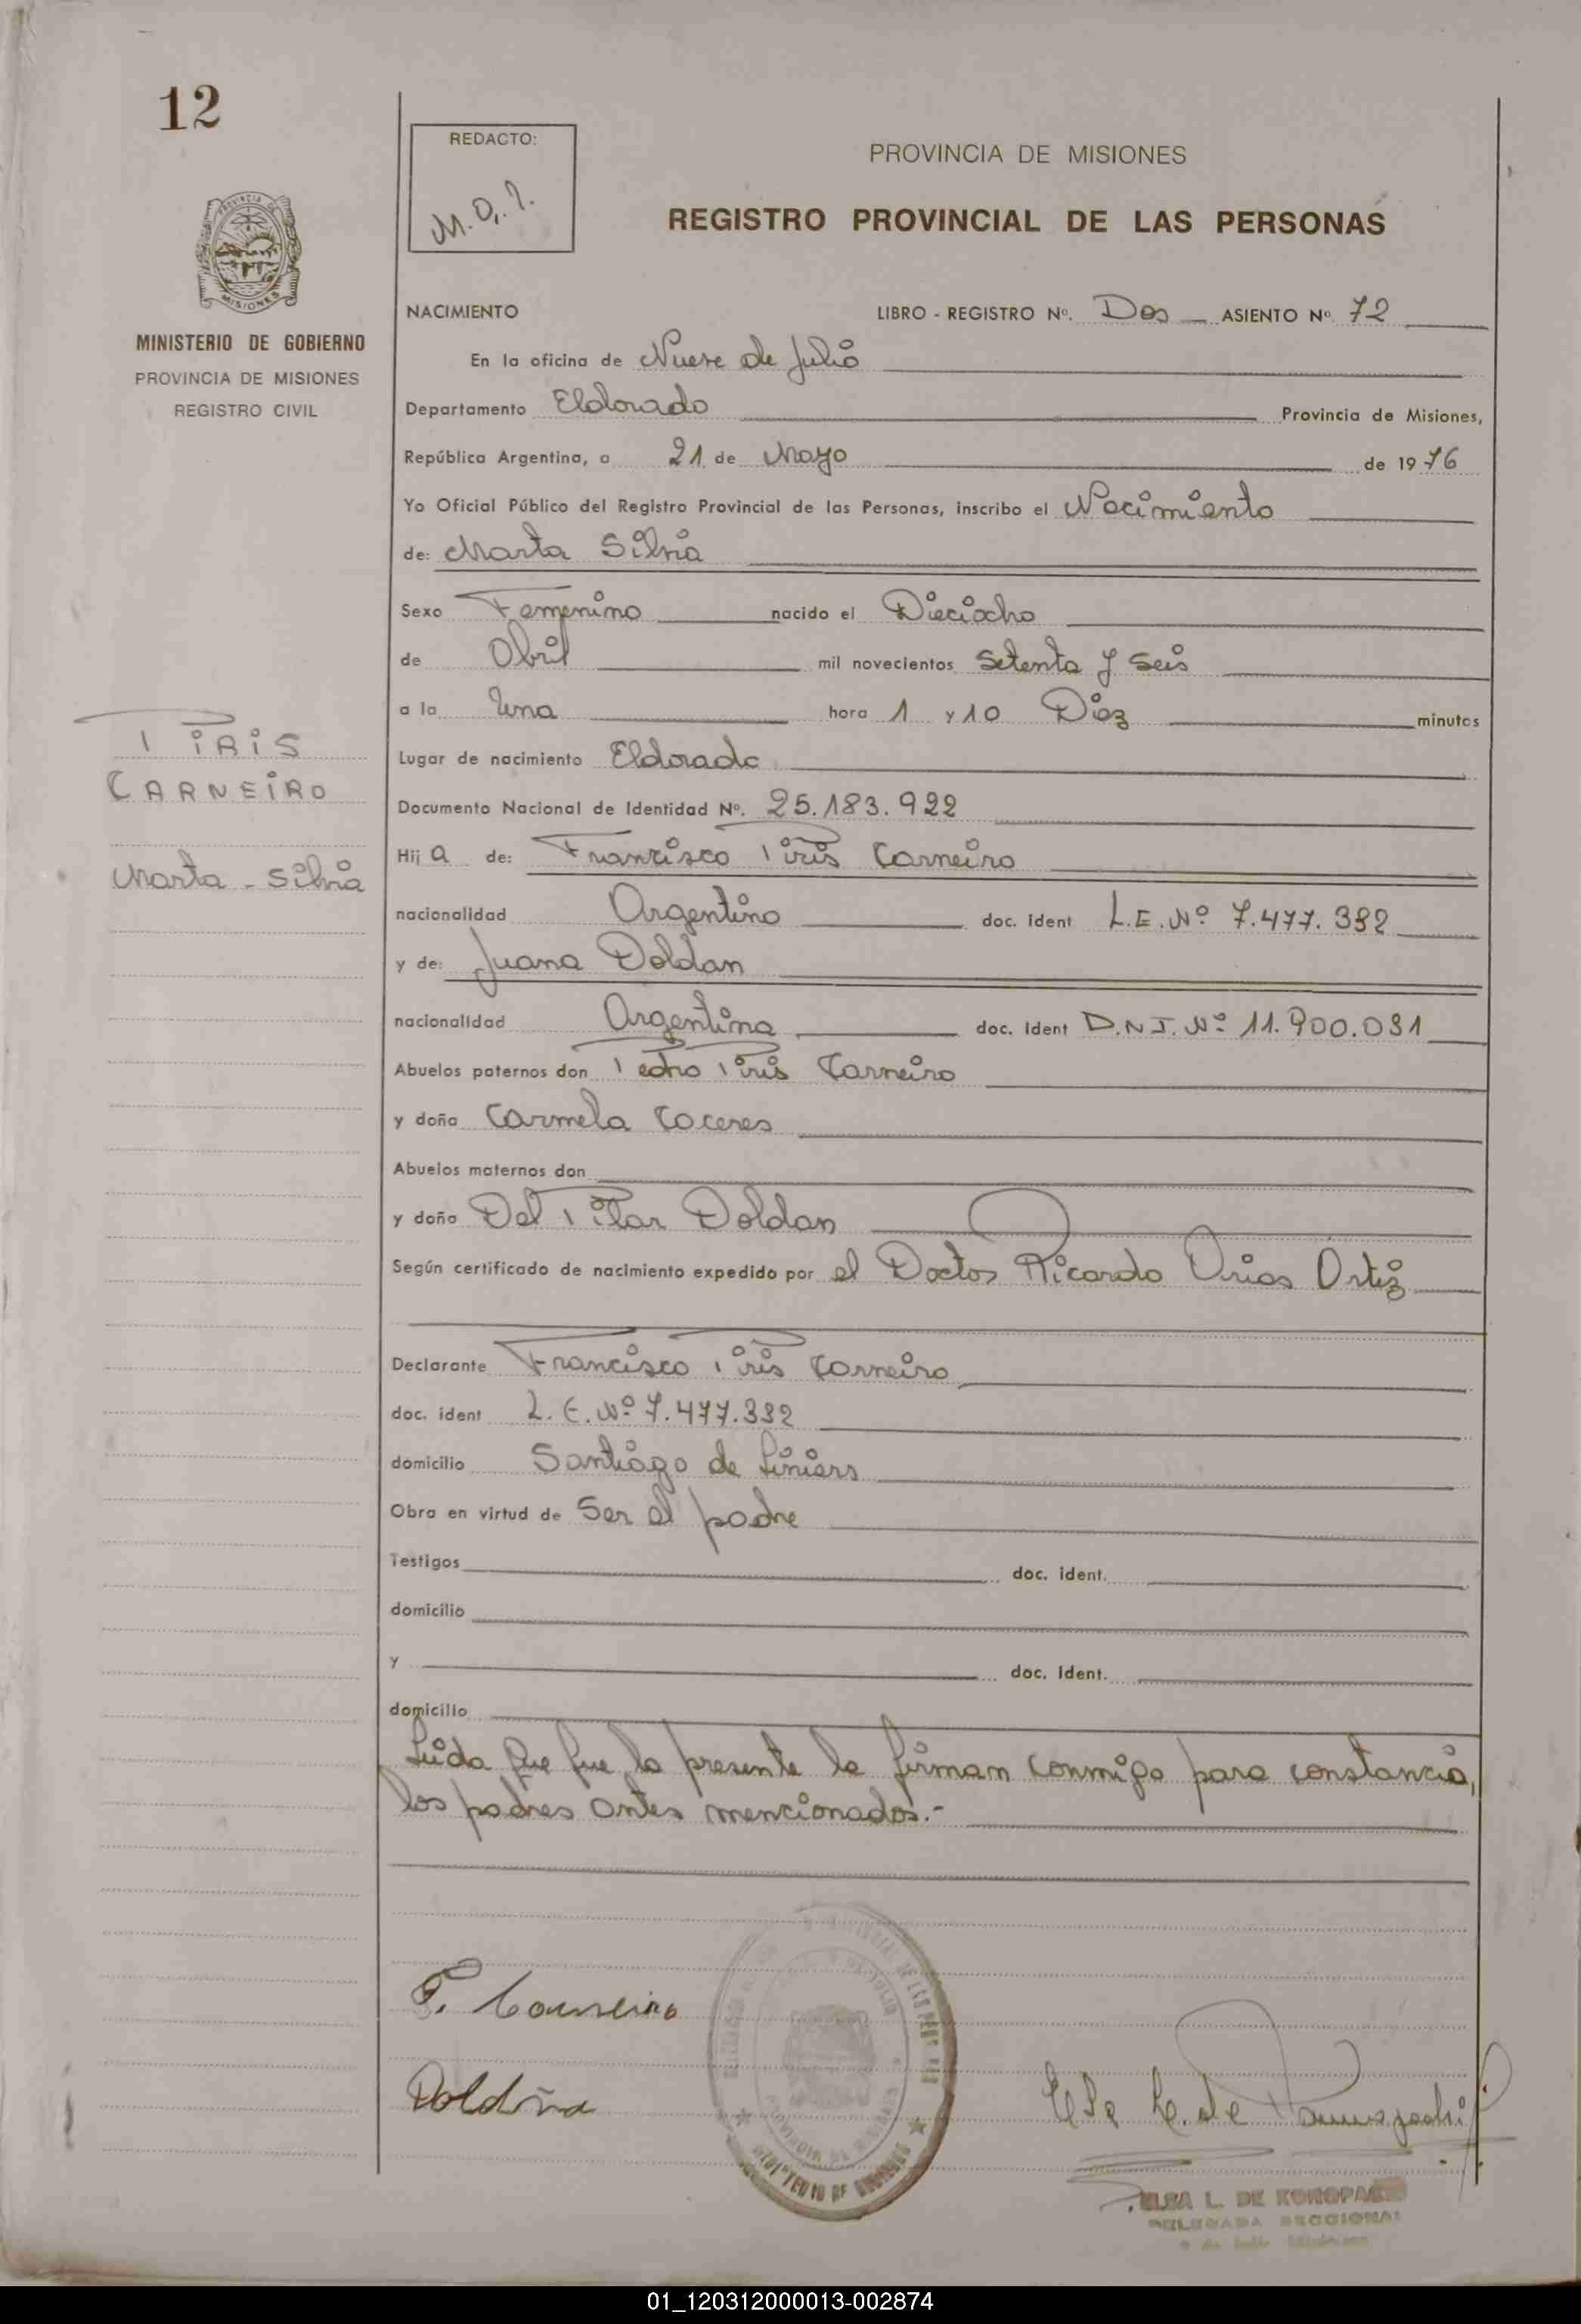 12
REDACTO:
PROVINCIA DE MISIONES
REGISTRO PROVINCIAL DE LAS PERSONAS
MISIONES
MINISTERIO DE GOBIERNO
PROVINCIA DE MISIONES
REGISTRO CIVIL
NACIMIENTO LIBRO - REGISTRO Nº. Dos ASIENTO Nº 72
En la oficina de Nueve de Julio
Departamento Eldorado Provincia de Misiones,
República Argentina, a 21 de Mayo de 1976
Yo Oficial Público del Registro Provincial de las Personas, inscribo el Nacimiento
de: Marta Silvia
Sexo Femenino nacido el Dieciocho
de Abril mil novecientos Setenta y Seis
a la Una hora 1 y 10 Diez minutos
PIRIS
CARNEIRO
Marta - Silvia
Lugar de nacimiento Eldorado
Documento Nacional de Identidad Nº. 25.183.922
Hij a de: Francisco Piris Carneiro
nacionalidad Argentino doc. ident L.E. Nº 7.477.382
y de: Juana Doldan
nacionalidad Argentina doc. ident D.N.I. Nº 11.900.031
Abuelos paternos don Pedro Piris Carneiro
y doña Carmela Caceres
Abuelos maternos don
y doña Del Pilar Doldan
Según certificado de nacimiento expedido por el Doctor Ricardo Arias Ortiz
Declarante Francisco Piris Carneiro
doc. ident L.E. Nº 7.477.382
domicilio Santiago de Liniers
Obra en virtud de Ser el padre
Testigos doc. ident.
domicilio
y doc. ident.
domicilio
Leida que fue la presente la firman conmigo para constancia,
los padres antes mencionados.-
F. Carneiro
ELSA L. DE KOROPAS
DELEGADA SECCIONAL
01_120312000013-002874